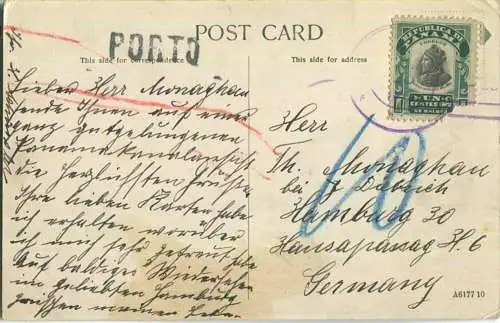 POST CARD
PORTO
This side for correspondence
This side for address
REPUBLICA DE
PANAMA
CORREOS
UN C
CENTESIMO
DE BALBOA
Lieber Herr Monaghan
sende Ihnen auf einer
ganz gutgelungenen
Panamakanalansicht
die herzlichsten Grüsse
Ihre lieben Karten habe
ich erhalten worüber
ich mich sehr gefreut habe
Auf baldiges Wiedersehen
im geliebten Hamburg
Herr
Th. Monaghan
bei J. Dabrich
Hamburg 30
Hansapassag H. 6
Germany
10
A6177 10